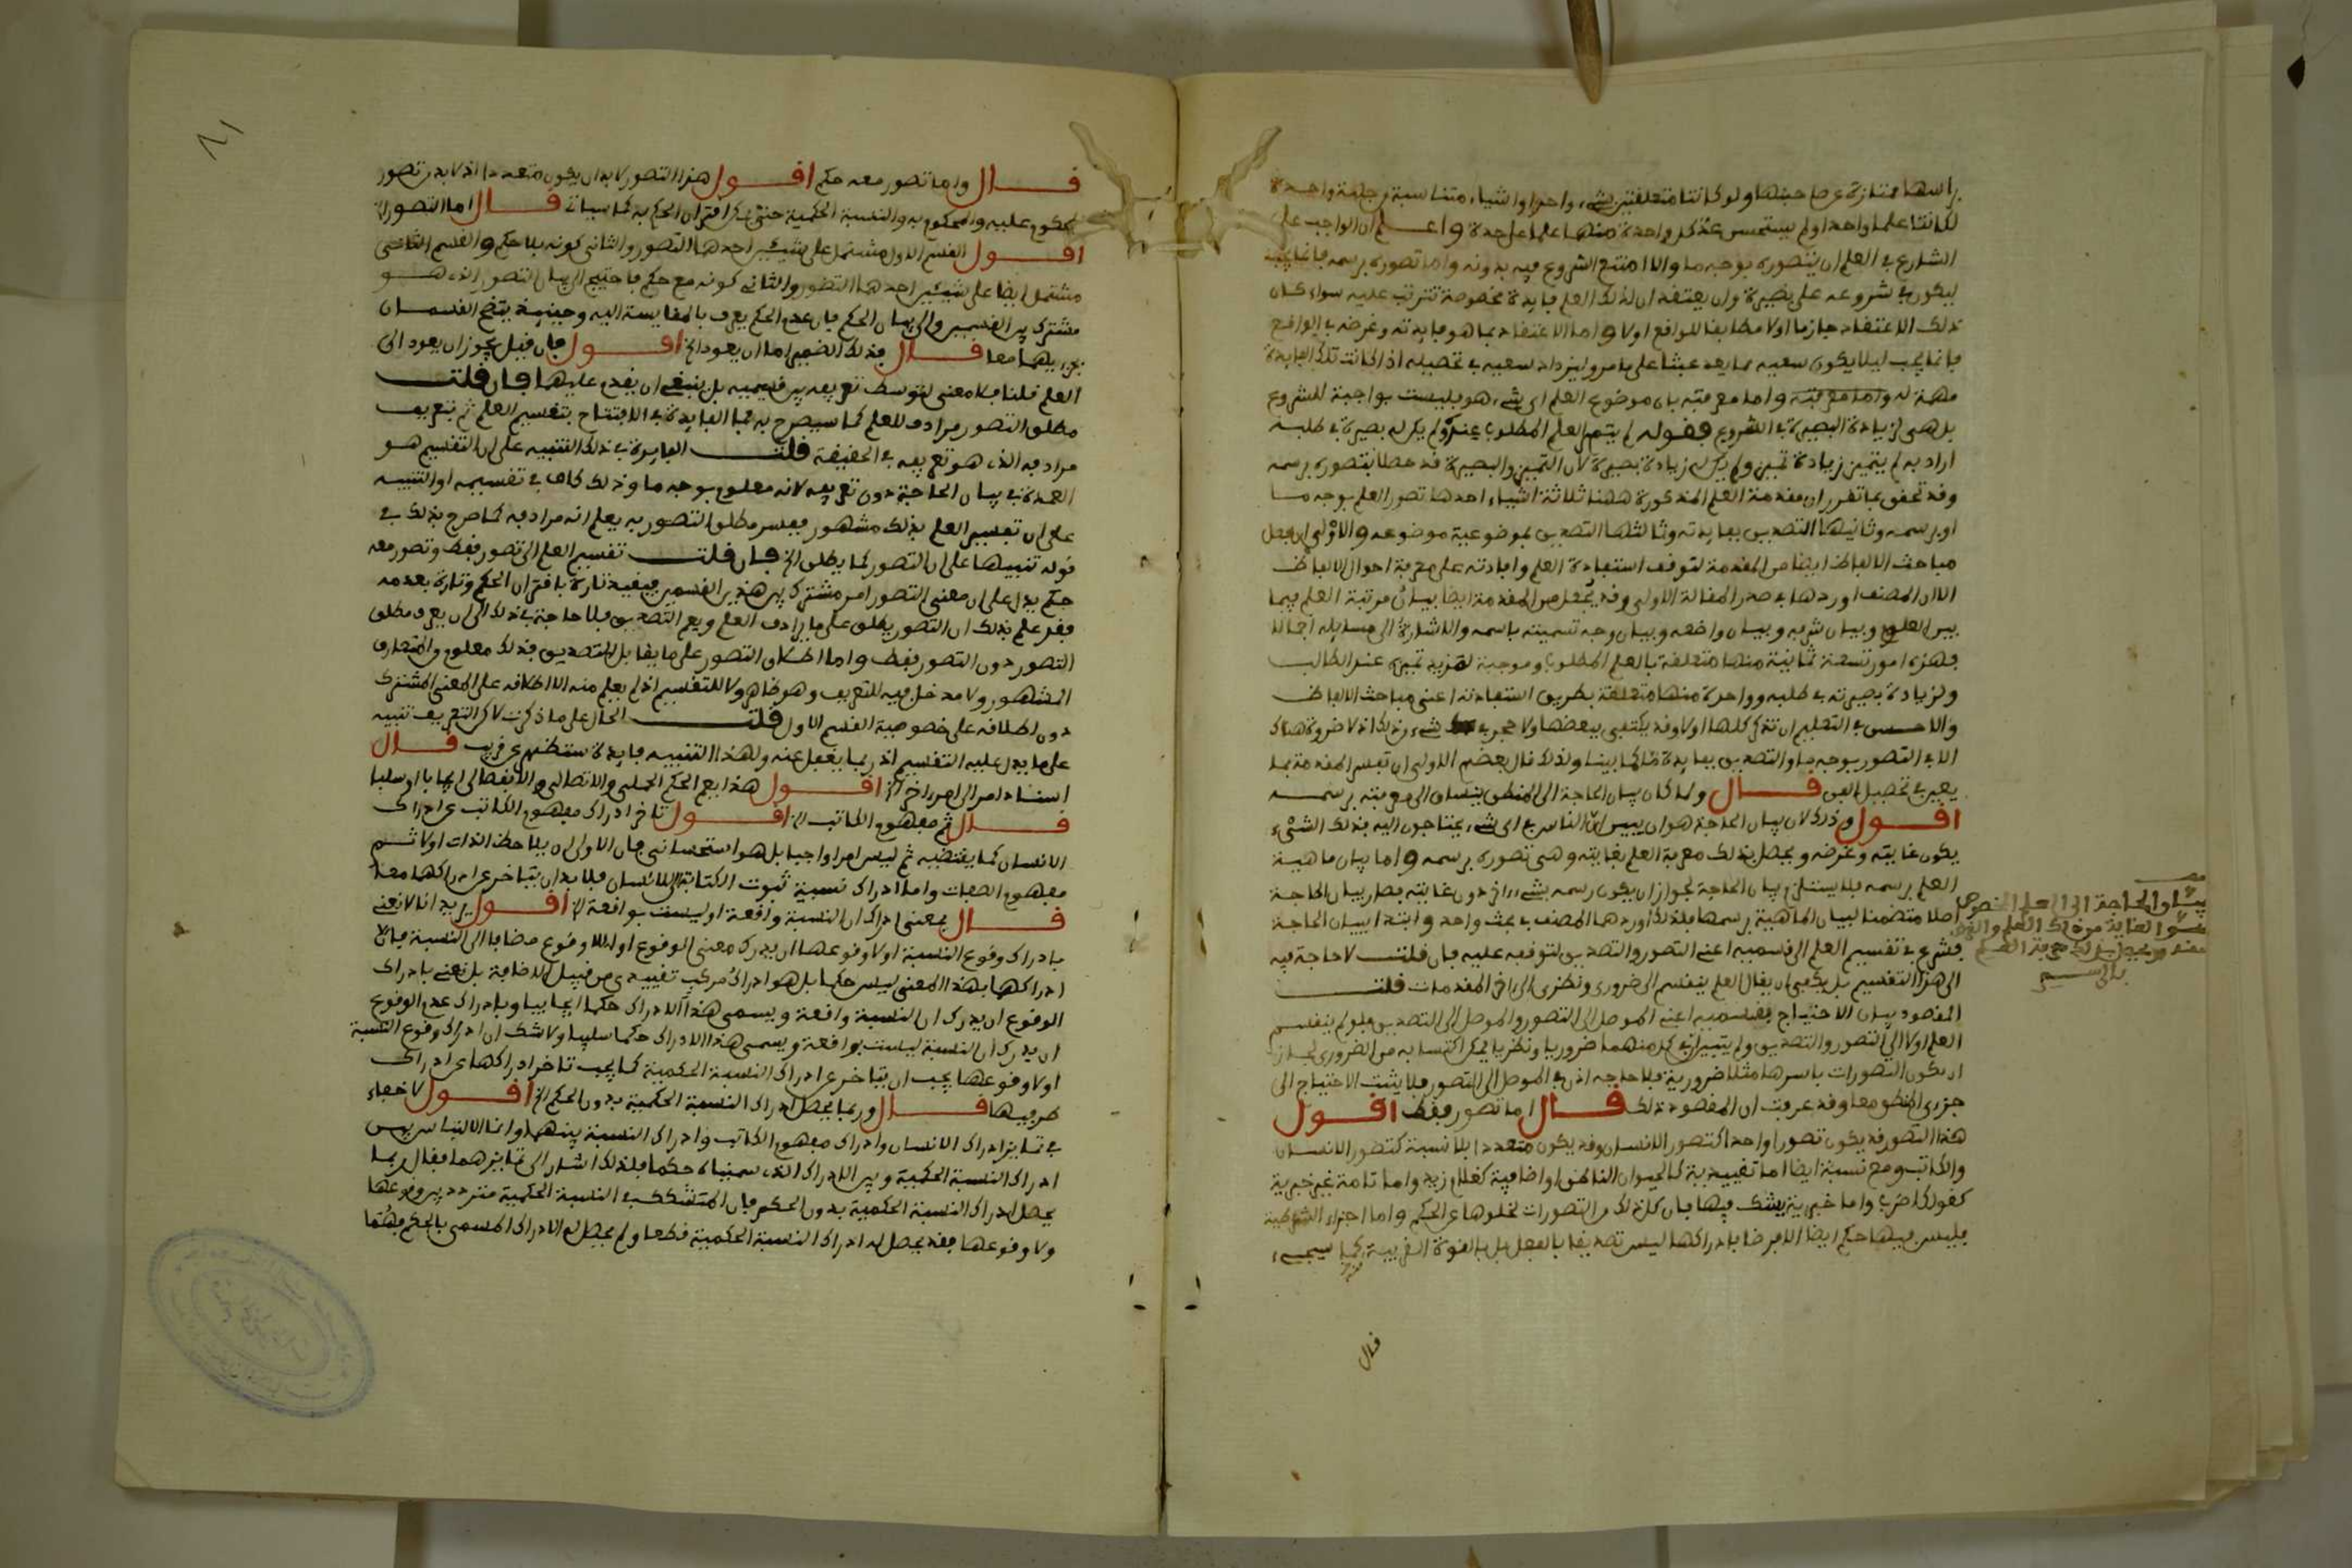 براسها ممتازة عن صاحبتها ولو كانتا متعلقتين بشيء واحد او اشياء متناسبة من جهة واحدة
لكانتا علما واحدا ولم يستحسن عد كل واحدة منهما علما على حدة واعلم ان الواجب على
الشارع في العلم ان يتصوره بوجه ما والا امتنع الشروع فيه بدونه واما تصوره برسمه فانما يجب
ليكون في شروعه على بصيرة وان يعتقد ان لذلك العلم فايدة مخصوصة تترتب عليه سواء كان
ذلك الاعتقاد جازما اولا مطابقا للواقع اولا واما الاعتقاد بما هو فايدته وغرضه في الواقع
فانما يجب ليلا يكون سعيه مما يعد عبثا على ما مر وليزداد سعيه في تحصيله اذا كانت تلك الفايدة
مهمة له واما معرفته واما معرفته بان موضوع العلم اي شيء هو فليست بواجبة للشروع
بل هي لزيادة البصيرة في الشروع فقوله لم يتميز العلم المطلوب عنده ولم يكن له بصيرة في طلبه
اراد به لم يتميز زيادة تميز ولم يكن له زيادة بصيرة لان التميز والبصيرة قد حصلا بتصوره برسمه
وقد تحقق بما تقرر ان مقدمة العلم المذكورة ههنا ثلاثة اشياء احدها تصور العلم بوجه ما
او برسمه وثانيها التصديق بفايدته وثالثها التصديق بموضوعية موضوعه والاولى ان يجعل
مباحث الالفاظ ايضا من المقدمة لتوقف استفادة العلم وافادته على معرفة احوال الالفاظ
الا ان المصنف اوردها في صدر المقالة الاولى وقد يجعل من المقدمة ايضا بيان مرتبة العلم فيما
بين العلوم وبيان شرفه وبيان واضعه وبيان وجه تسميته باسمه والاشارة الى مسايله اجمالا
فهذه امور تسعة ثمانية منها متعلقة بالعلم المطلوب وموجبة لمزيد تميزه عند الطالب
ولزيادة بصيرته في طلبه وواحدة منها متعلقة بطريق استفادته اعني مباحث الالفاظ
والاحسن في التعليم ان تذكر كلها اولا وقد يكتفى ببعضها ولا حجر في شيء من ذلك اذ لا ضرورة هناك
الا في التصور بوجه ما والتصديق بفايدة ما كما بينا ولذلك قال بعضهم الاولى ان تفسر المقدمة بما
يعين في تحصيل الفن قال ولما كان بيان الحاجة الى المنطق ينساق الى معرفته برسمه
اقول وذلك لان بيان الحاجة هو ان يبين ان الناس في اي شيء يحتاجون اليه فذلك الشيء
يكون غايته وغرضه ويحصل بذلك معرفة العلم بغايته وهي تصوره برسمه واما بيان ماهية
العلم برسمه فلا يستلزم بيان الحاجة لجواز ان يكون رسمه بشيء اخر دون غايته فصار بيان الحاجة
اصلا متضمنا لبيان الماهية برسمها فلذلك اوردهما المصنف في بحث واحد وابتدا ببيان الحاجة
فشرع في تقسيم العلم الى قسميه اعني التصور والتصديق لتوقفه عليه فان قلت لا حاجة فيه
الى هذا التقسيم بل يكفي ان يقال العلم ينقسم الى ضروري ونظري الى اخر المقدمات قلت
المقصود بيان الاحتياج بقسميه اعني الموصل الى التصور والموصل الى التصديق فلو لم ينقسم
العلم اولا الى التصور والتصديق ولم يتبين ان في كل منهما ضروريا ونظريا يمكن اكتسابه من الضروري لجاز
ان تكون التصورات باسرها مثلا ضرورية فلا حاجة اذن في الموصل الى التصور فلا يثبت الاحتياج الى
جزءي المنطق معا وقد عرفت ان المقصود ذلك قال اما تصور فقط اقول
هذا التصور قد يكون تصورا واحدا كتصور الانسان وقد يكون متعددا بلا نسبة كتصور الانسان
والكاتب ومع نسبة ايضا اما تقييدية كالحيوان الناطق او اضافية كغلام زيد واما تامة غير خبرية
كقولك اضرب واما خبرية يشك فيها فان كل ذلك من التصورات لخلوها عن الحكم واما اجزاء الشرطية
فليس فيها حكم ايضا الا فرضا فادراكها ليس تصديقا بالفعل بل بالقوة القريبة كما سيجيء
بيان الحاجة الى العلم المخصوص
هو الغاية من ذلك العلم والغرض
منه ويحصل بذلك معرفة العلم
بالرسم
قال
قال واما تصور معه حكم اقول هذا التصور لا بد ان يكون متعددا اذ لا بد من تصور
المحكوم عليه والمحكوم به والنسبة الحكمية حتى يمكن اقتران الحكم به كما سياتي قال اما التصور الخ
اقول القسم الاول مشتمل على شيئين احدهما التصور والثاني كونه بلا حكم والقسم الثاني
مشتمل ايضا على شيئين احدهما التصور والثاني كونه مع حكم فاحتيج الى بيان التصور الذي هو
مشترك بين القسمين والى بيان الحكم فان عدم الحكم يعرف بالمقايسة اليه وحينئذ يتضح القسمان
بجزءيهما معا قال فذلك الضمير اما ان يعود الخ اقول فان قيل يجوز ان يعود الى
العلم قلنا فلا معنى لتوسط تعريفه بين قسميه بل ينبغي ان يقدم عليهما فان قلت
مطلق التصور مرادف للعلم كما سيصرح به فما الفايدة في الافتتاح بتقسيم العلم ثم تعريف
مرادفه الذي هو تعريفه في الحقيقة قلت الفايدة في ذلك التنبيه على ان التقسيم هو
العمدة في بيان الحاجة دون تعريفه لانه معلوم بوجه ما وذلك كاف في تقسيمه او التنبيه
على ان تفسير العلم بذلك مشهور ففسر مطلق التصور به يعلم انه مرادفه كما صرح بذلك في
قوله تنبيها على ان التصور كما يطلق الخ فان قلت تقسيم العلم الى تصور فقط وتصور معه
حكم يدل على ان معنى التصور امر مشترك بين هذين القسمين فيقيد تارة باقتران الحكم وتارة بعدمه
فقد علم بذلك ان التصور يطلق على ما يرادف العلم ويعم التصديق فلا حاجة في ذلك الى ان يعرف مطلق
التصور دون التصور فقط واما اطلاق التصور على ما يقابل التصديق فذلك معلوم والمتعارف
المشهور ولا مدخل فيه للتعريف وهو ظاهر ولا للتقسيم اذ لم يعلم منه الا اطلاقه على المعنى المشترك
دون اطلاقه على خصوصية القسم الاول قلت الحال على ما ذكرت لاكن التعريف تنبيه
على ما يدل عليه التقسيم اذ ربما يغفل عنه ولهذا التنبيه فايدة ستظهر عن قريب قال
اسناد امر الى امر اخر الخ اقول هذا يعم الحكم الحملي والاتصالي والانفصالي ايجابا او سلبا
قال ثم مفهوم الكاتب الخ اقول تاخر ادراك مفهوم الكاتب عن ادراك
الانسان كما يقتضيه ثم ليس امرا واجبا بل هو استحساني فان الاولى ان يلاحظ الذات اولا ثم
مفهوم الصفات واما ادراك نسبية ثبوت الكتابة للانسان فلا بد ان يتاخر عن ادراكهما معا
قال بمعنى ادراك ان النسبة واقعة او ليست بواقعة الخ اقول يريد انا لا نعني
بادراك وقوع النسبة اولا وقوعها ان يدرك معنى الوقوع او اللا وقوع مضافا الى النسبة فان
ادراكهما بهذا المعنى ليس حكما بل هو ادراك مركب تقييدي من قبيل الاضافة بل نعني بادراك
الوقوع ان يدرك ان النسبة واقعة ويسمى هذا الادراك حكما ايجابيا وبادراك عدم الوقوع
ان يدرك ان النسبة ليست بواقعة ويسمى هذا الادراك حكما سلبيا ولا شك ان ادراك وقوع النسبة
اولا وقوعها يجب ان يتاخر عن ادراك النسبة الحكمية كما يجب تاخر ادراكها عن ادراك
طرفيها قال وربما يحصل ادراك النسبة الحكمية بدون الحكم الخ اقول لا خفاء
في تمايز ادراك الانسان وادراك مفهوم الكاتب وادراك النسبة بينهما وانما الالتباس بين
ادراك النسبة الحكمية وبين الادراك الذي سميناه حكما فلذلك اشار الى تمايزهما فقال ربما
يحصل ادراك النسبة الحكمية بدون الحكم فان المتشكك في النسبة الحكمية متردد بين وقوعها
ولا وقوعها فقد يحصل له ادراك النسبة الحكمية قطعا ولم يحصل له الادراك المسمى بالحكم فهما